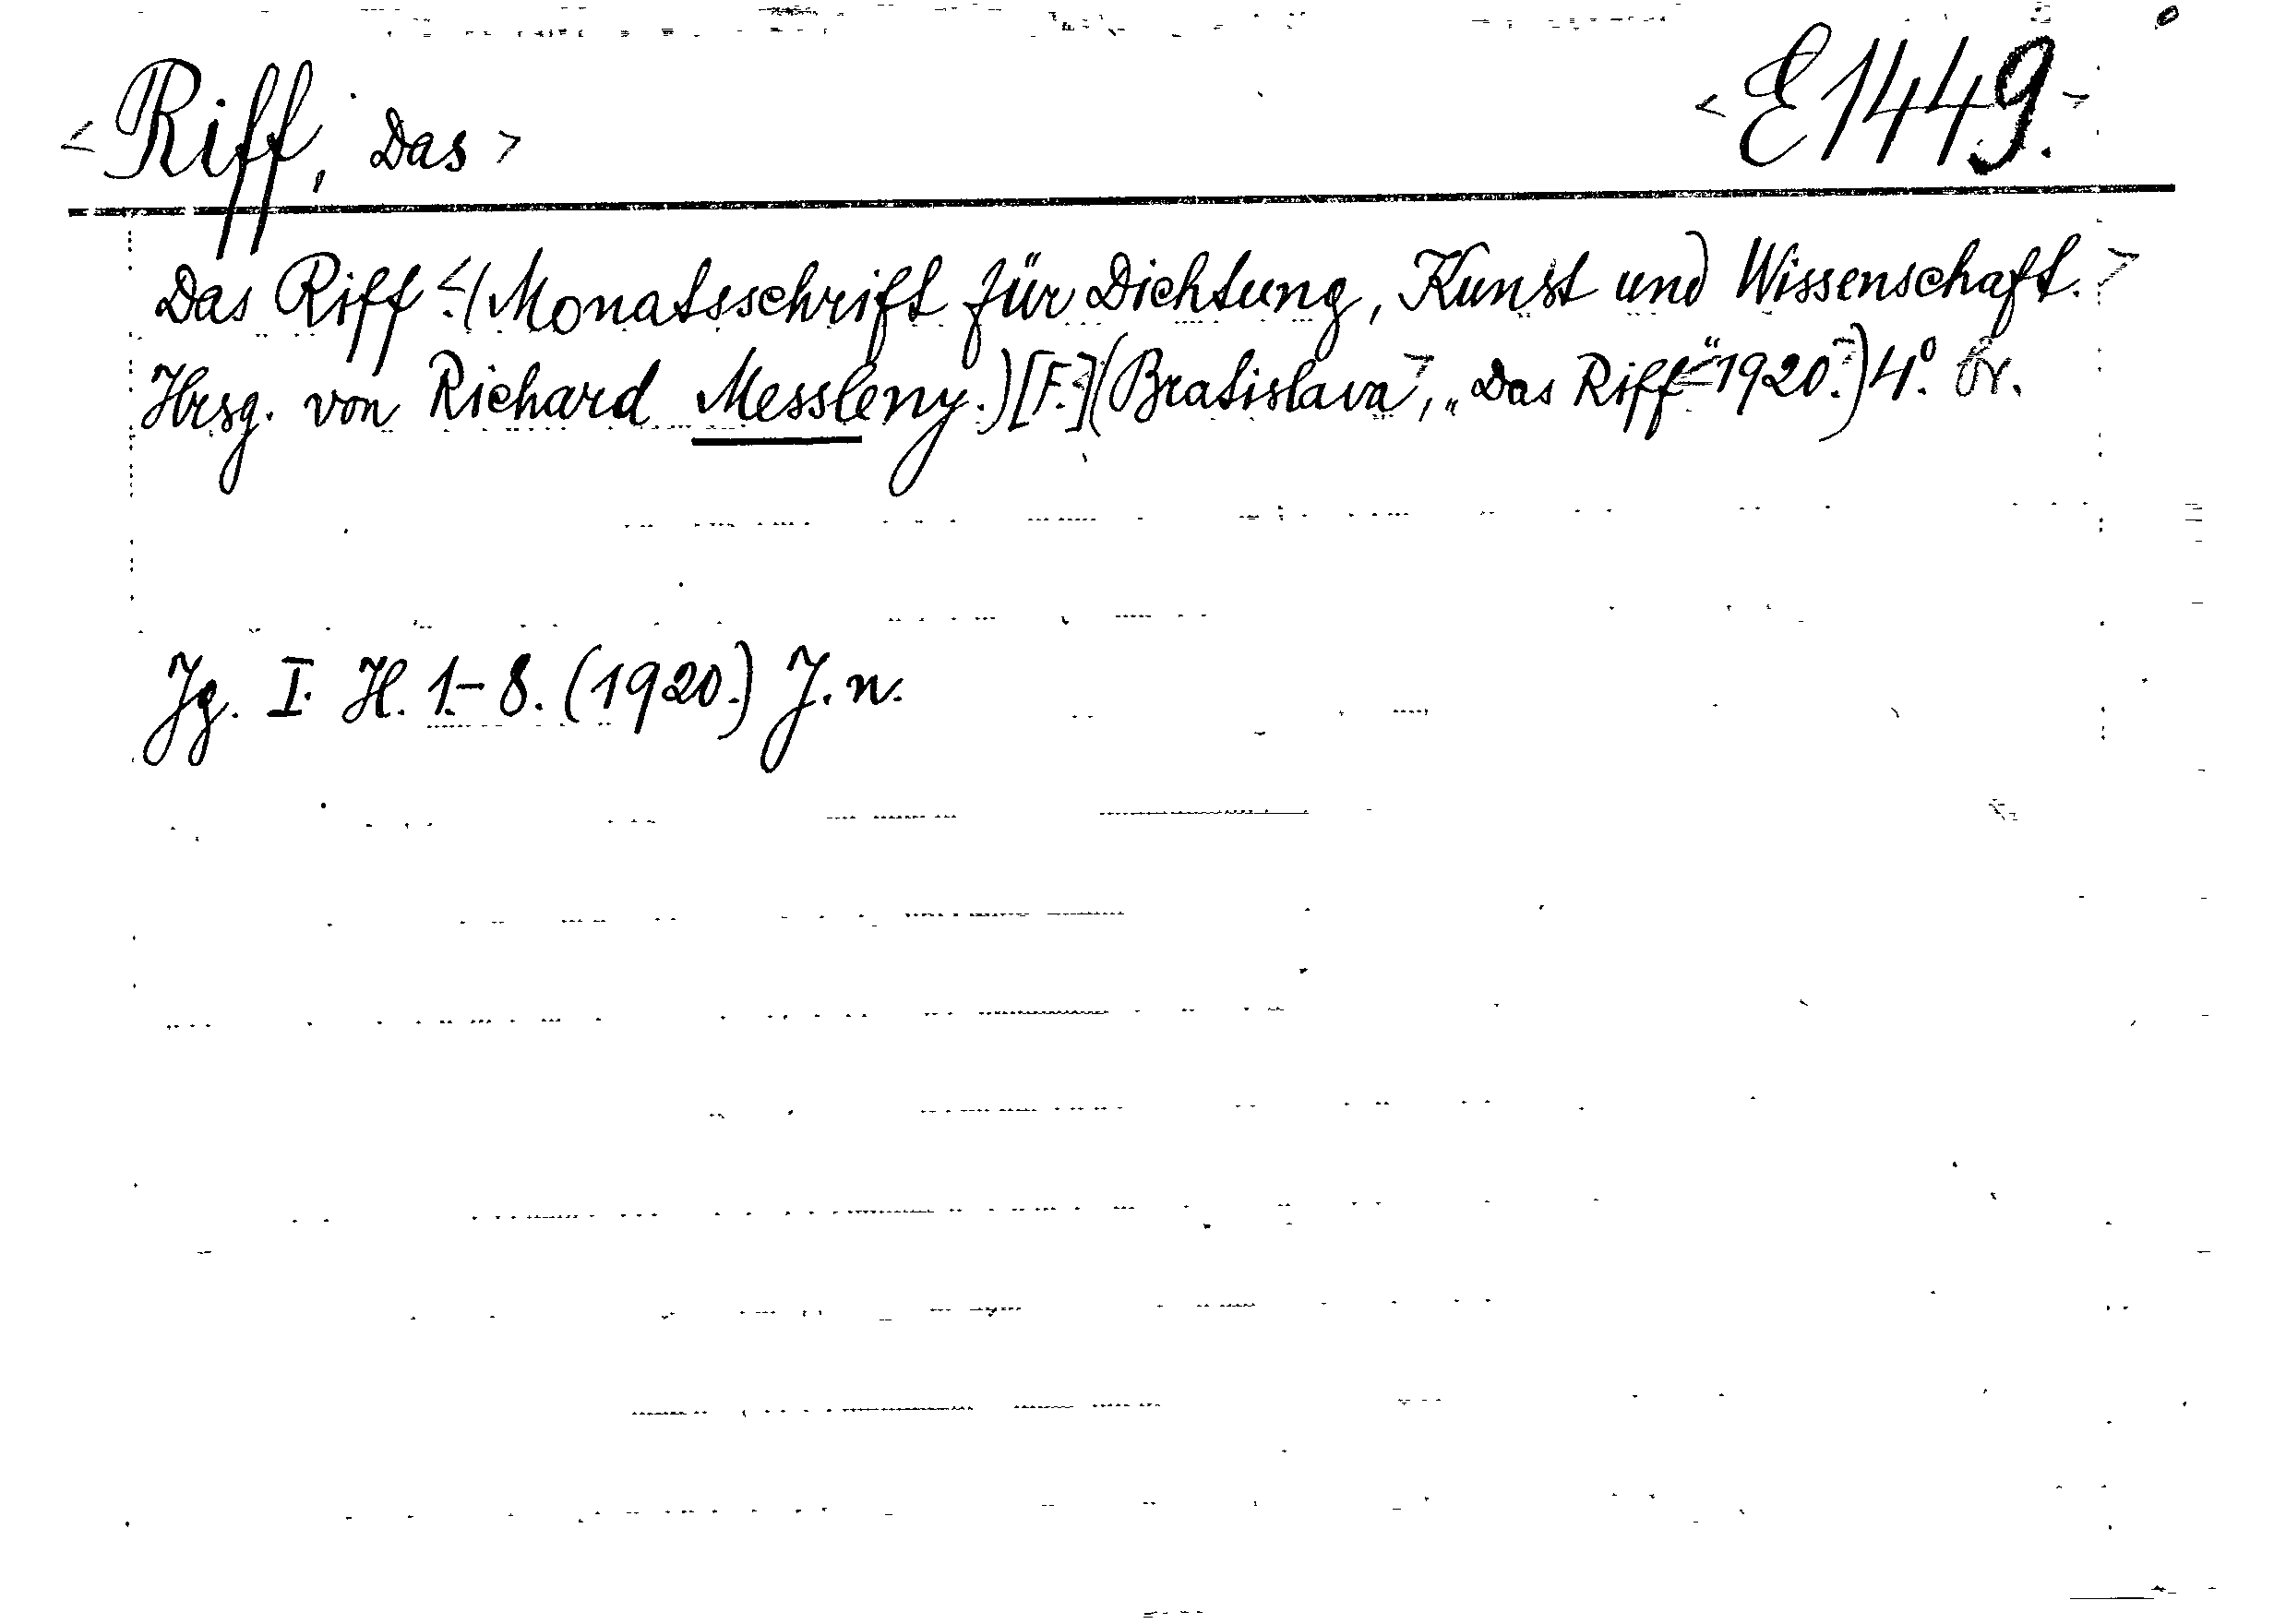 <Riff, Das> <E1449.>
Das Riff <(Monatsschrift für Dichtung, Kunst und Wissenschaft.>
Hrsg. von Richard Messleny.) [F.<] (Bratislava>, „Das Riff<“ 1920.>) 4°. br.
Jg. I. H. 1.-8. (1920.) J. n.